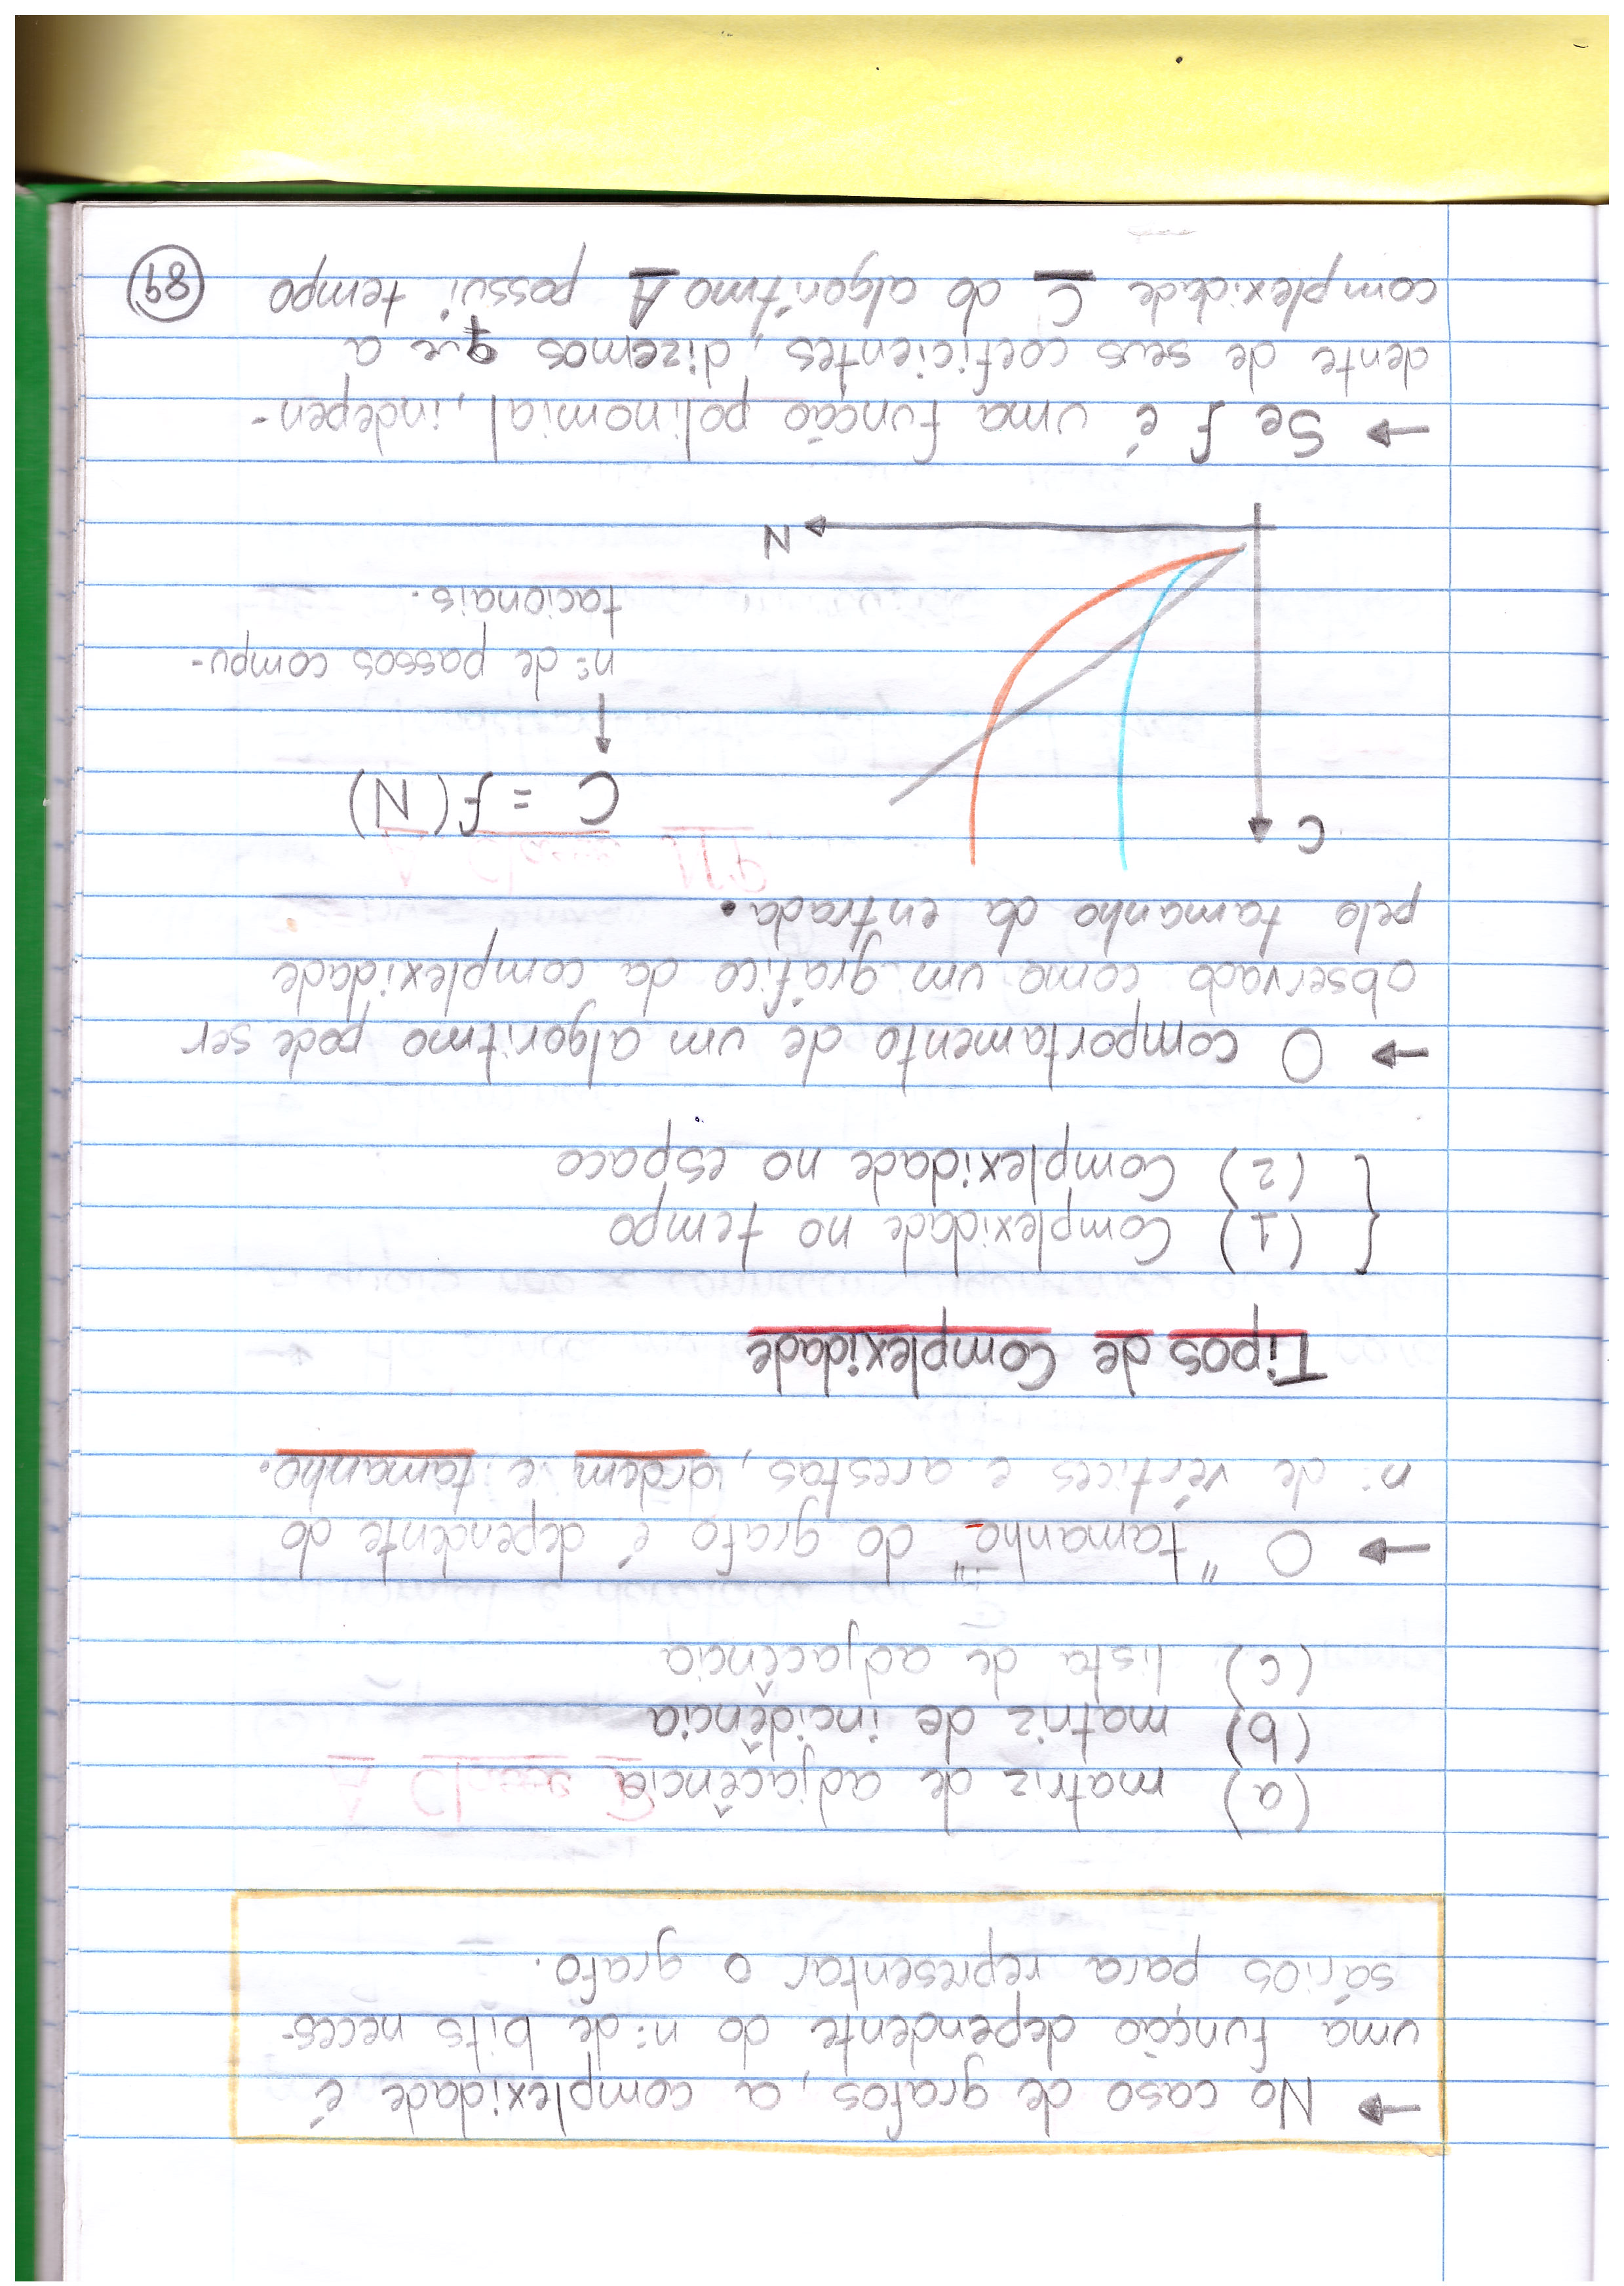 → No caso de grafos, a complexidade é
uma função dependente do nº de bits neces-
sários para representar o grafo.
(a) matriz de adjacência
(b) matriz de incidência
(c) lista de adjacência
→ O "tamanho" do grafo é dependente do
nº de vértices e arestas, ordem e tamanho.
Tipos de Complexidade
(1) Complexidade no tempo
(2) Complexidade no espaco
→ O comportamento de um algoritmo pode ser
observado como um gráfico da complexidade
pelo tamanho da entrada.
C
C = f(N)
↑
nº de passos compu-
tacionais.
N
→ Se f é uma função polinomial, indepen-
dente de seus coeficientes, dizemos que a
complexidade C do algorítmo A possui tempo
89